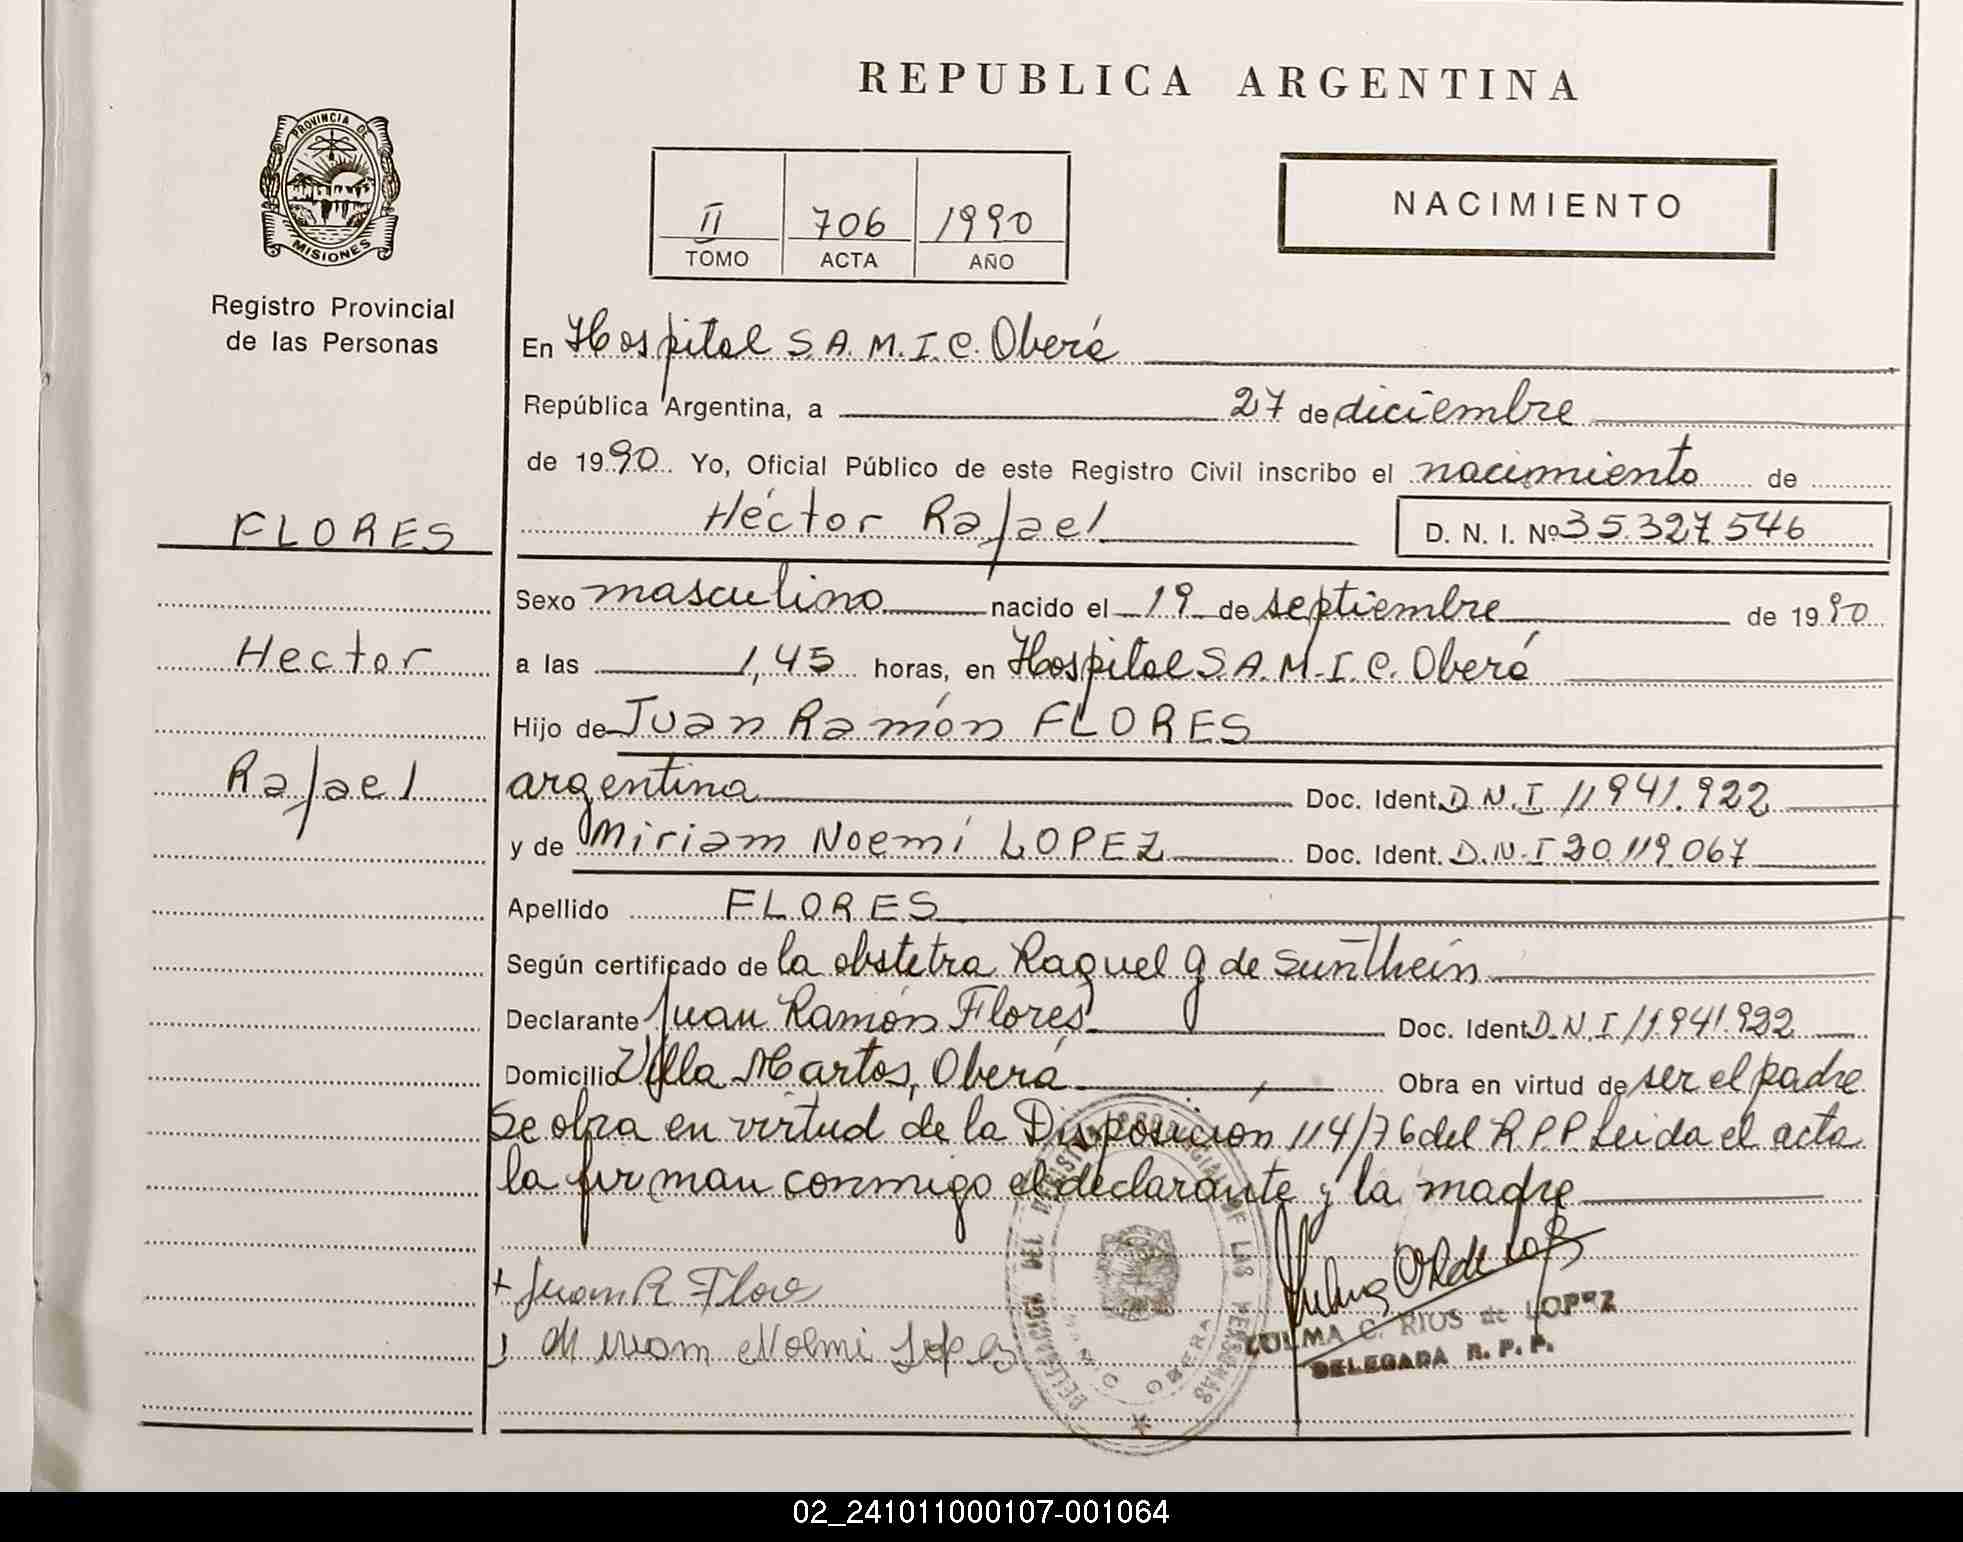 REPUBLICA ARGENTINA
PROVINCIA DE
MISIONES
Registro Provincial
de las Personas
II 706 1990
TOMO ACTA AÑO
NACIMIENTO
En Hospital S.A.M.I.C. Oberá
República Argentina, a 27 de diciembre
de 1990. Yo, Oficial Público de este Registro Civil inscribo el nacimiento de
FLORES
Héctor Rafael D. N. I. Nº 35.327.546
Sexo masculino nacido el 19 de septiembre de 1990
Hector
a las 1,45 horas, en Hospital S.A.M.I.C. Oberá
Hijo de Juan Ramón FLORES
Rafael
argentina Doc. Ident. D.N.I 11.941.922
y de Miriam Noemí LOPEZ Doc. Ident. D.N.I 20.119.067
Apellido FLORES
Según certificado de la obstetra Raquel G de
Declarante Juan Ramón Flores Doc. Ident. D.N.I 11.941.922
Domicilio Villa Martos, Oberá Obra en virtud de ser el padre
Se obra en virtud de la Disposición 114/76 del R.P.P. Leida el acta
la firman conmigo el declarante y la madre
Juan R Flore
Miriam Noemi Lopez
ZULMA C. RIOS de LOPEZ
DELEGADA R. P. P.
DE LAS PERSONAS
OBERA
02_241011000107-001064